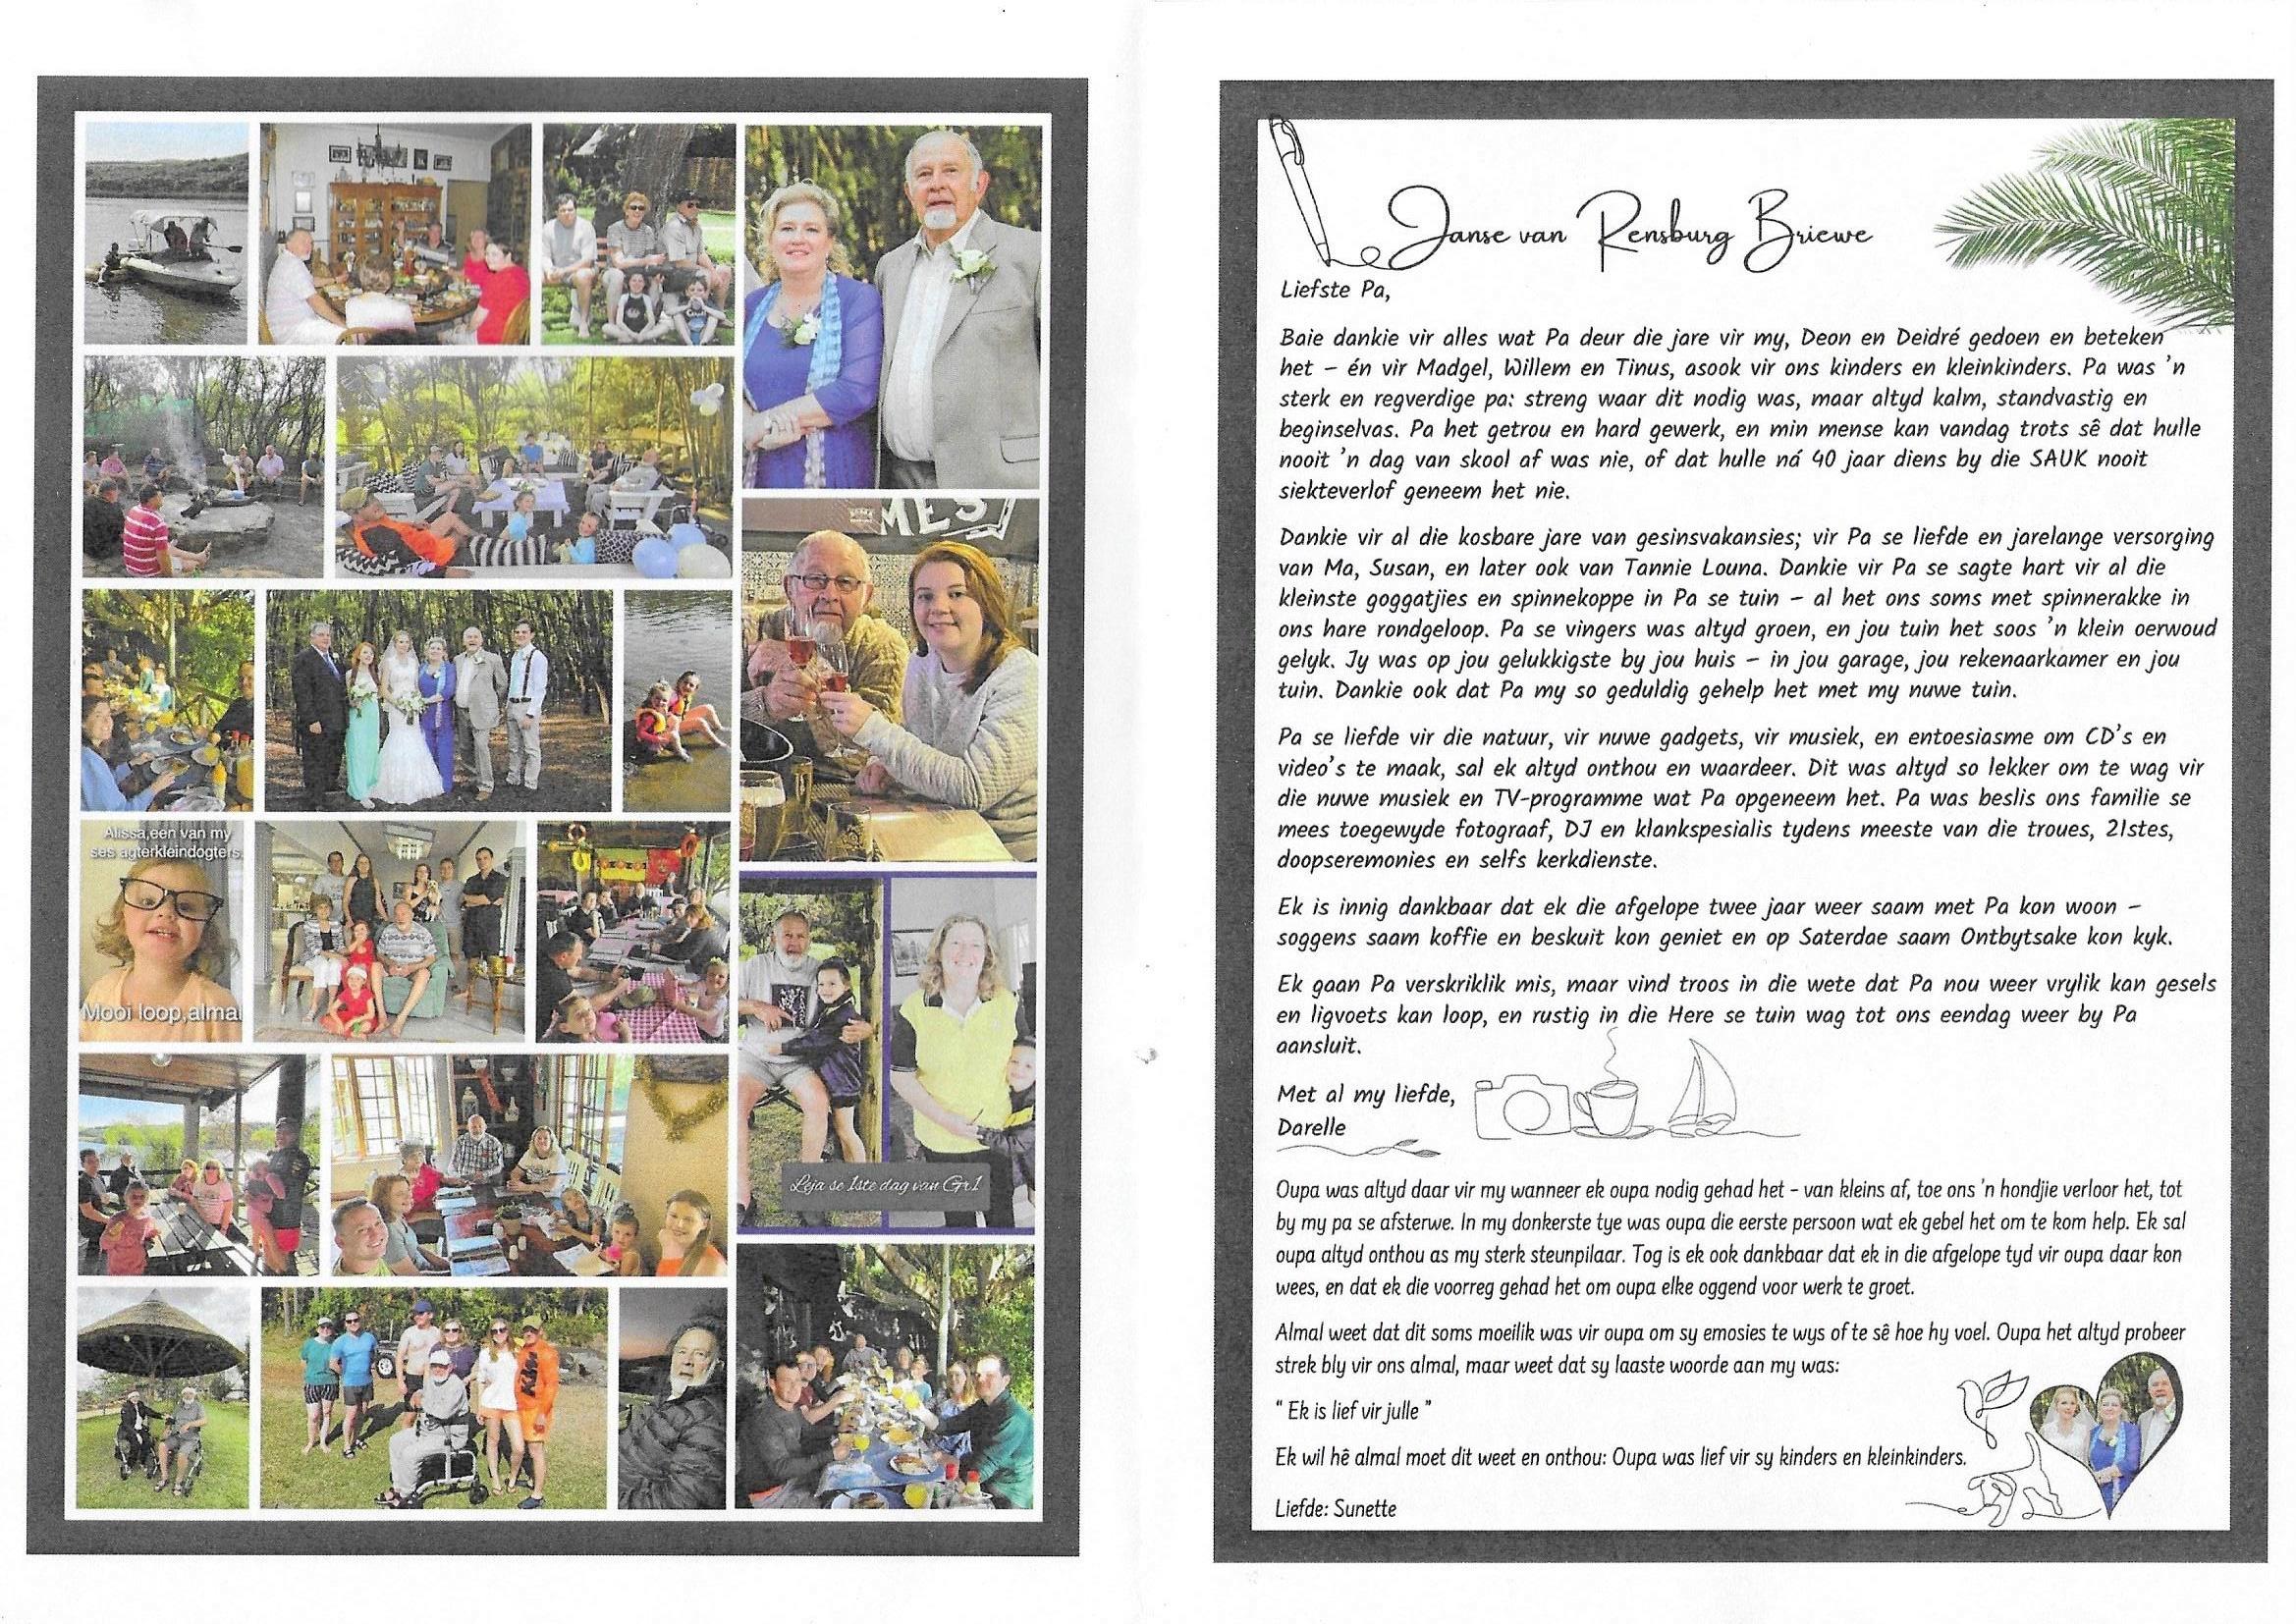 MES
Alissa,een van my
ses agterkleindogters.
Mooi loop,almal
Leja se 1ste dag van Gr1
Janse van Rensburg Briewe
Liefste Pa,
Baie dankie vir alles wat Pa deur die jare vir my, Deon en Deidré gedoen en beteken
het – én vir Madgel, Willem en Tinus, asook vir ons kinders en kleinkinders. Pa was 'n
sterk en regverdige pa: streng waar dit nodig was, maar altyd kalm, standvastig en
beginselvas. Pa het getrou en hard gewerk, en min mense kan vandag trots sê dat hulle
nooit 'n dag van skool af was nie, of dat hulle ná 40 jaar diens by die SAUK nooit
siekteverlof geneem het nie.
Dankie vir al die kosbare jare van gesinsvakansies; vir Pa se liefde en jarelange versorging
van Ma, Susan, en later ook van Tannie Louna. Dankie vir Pa se sagte hart vir al die
kleinste goggatjies en spinnekoppe in Pa se tuin – al het ons soms met spinnerakke in
ons hare rondgeloop. Pa se vingers was altyd groen, en jou tuin het soos 'n klein oerwoud
gelyk. Jy was op jou gelukkigste by jou huis – in jou garage, jou rekenaarkamer en jou
tuin. Dankie ook dat Pa my so geduldig gehelp het met my nuwe tuin.
Pa se liefde vir die natuur, vir nuwe gadgets, vir musiek, en entoesiasme om CD's en
video's te maak, sal ek altyd onthou en waardeer. Dit was altyd so lekker om te wag vir
die nuwe musiek en TV-programme wat Pa opgeneem het. Pa was beslis ons familie se
mees toegewyde fotograaf, DJ en klankspesialis tydens meeste van die troues, 21stes,
doopseremonies en selfs kerkdienste.
Ek is innig dankbaar dat ek die afgelope twee jaar weer saam met Pa kon woon –
soggens saam koffie en beskuit kon geniet en op Saterdae saam Ontbytsake kon kyk.
Ek gaan Pa verskriklik mis, maar vind troos in die wete dat Pa nou weer vrylik kan gesels
en ligvoets kan loop, en rustig in die Here se tuin wag tot ons eendag weer by Pa
aansluit.
Met al my liefde,
Darelle
Oupa was altyd daar vir my wanneer ek oupa nodig gehad het - van kleins af, toe ons 'n hondjie verloor het, tot
by my pa se afsterwe. In my donkerste tye was oupa die eerste persoon wat ek gebel het om te kom help. Ek sal
oupa altyd onthou as my sterk steunpilaar. Tog is ek ook dankbaar dat ek in die afgelope tyd vir oupa daar kon
wees, en dat ek die voorreg gehad het om oupa elke oggend voor werk te groet.
Almal weet dat dit soms moeilik was vir oupa om sy emosies te wys of te sê hoe hy voel. Oupa het altyd probeer
strek bly vir ons almal, maar weet dat sy laaste woorde aan my was:
" Ek is lief vir julle "
Ek wil hê almal moet dit weet en onthou: Oupa was lief vir sy kinders en kleinkinders.
Liefde: Sunette